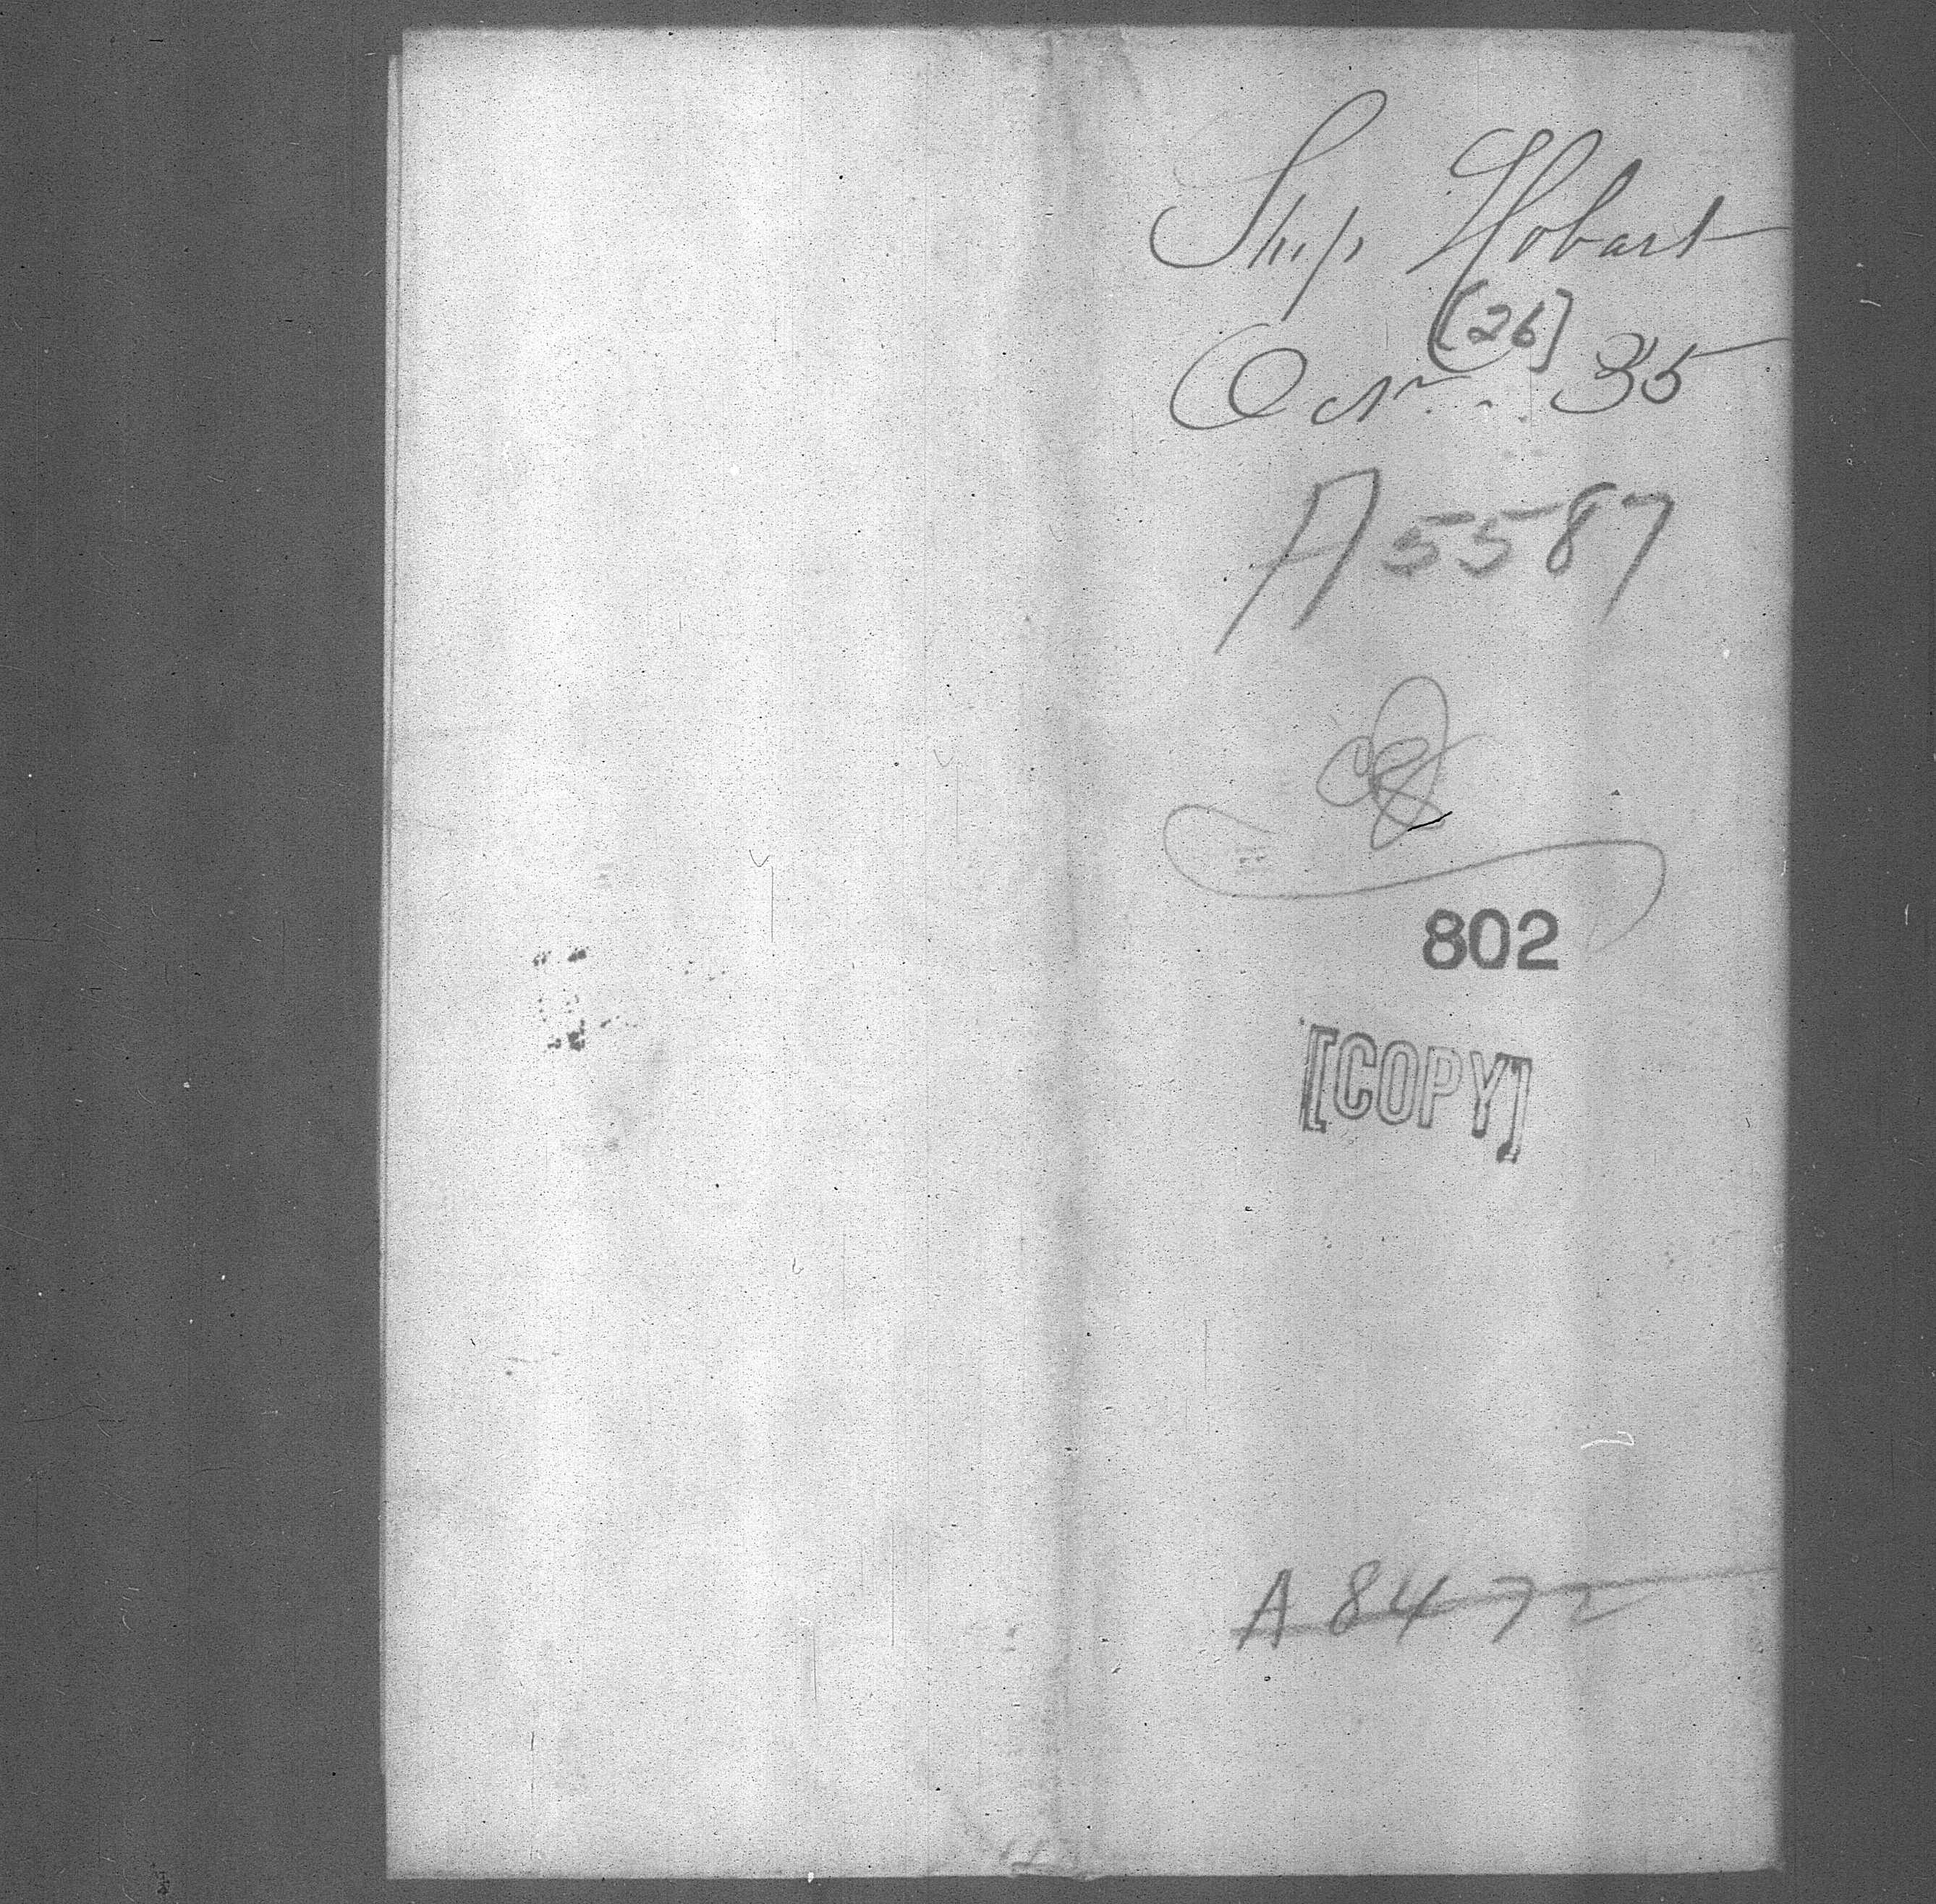 Ship Hobart
[26]
35
A 5587
802
[COPY]
A 8472